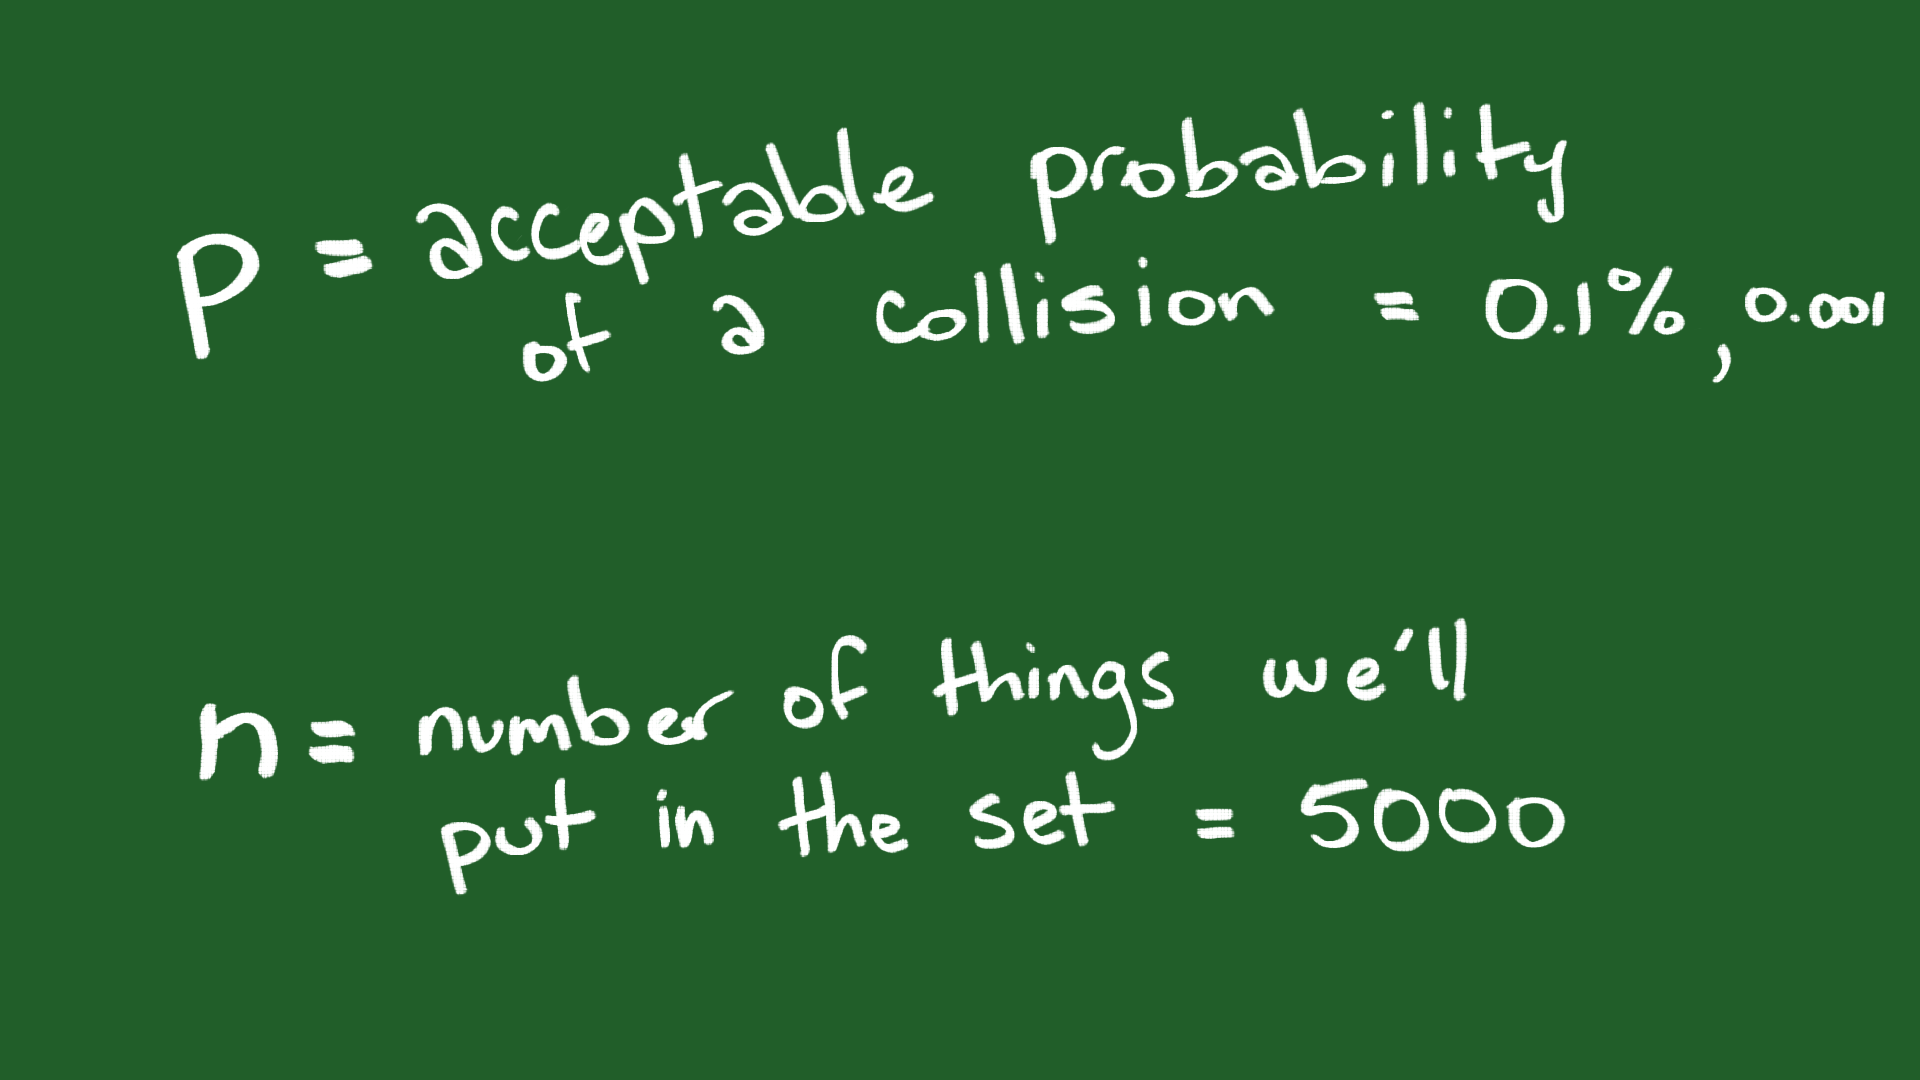 P = acceptable probability
of a collision = 0.1%, 0.001
n = number of things we'll
put in the set = 5000